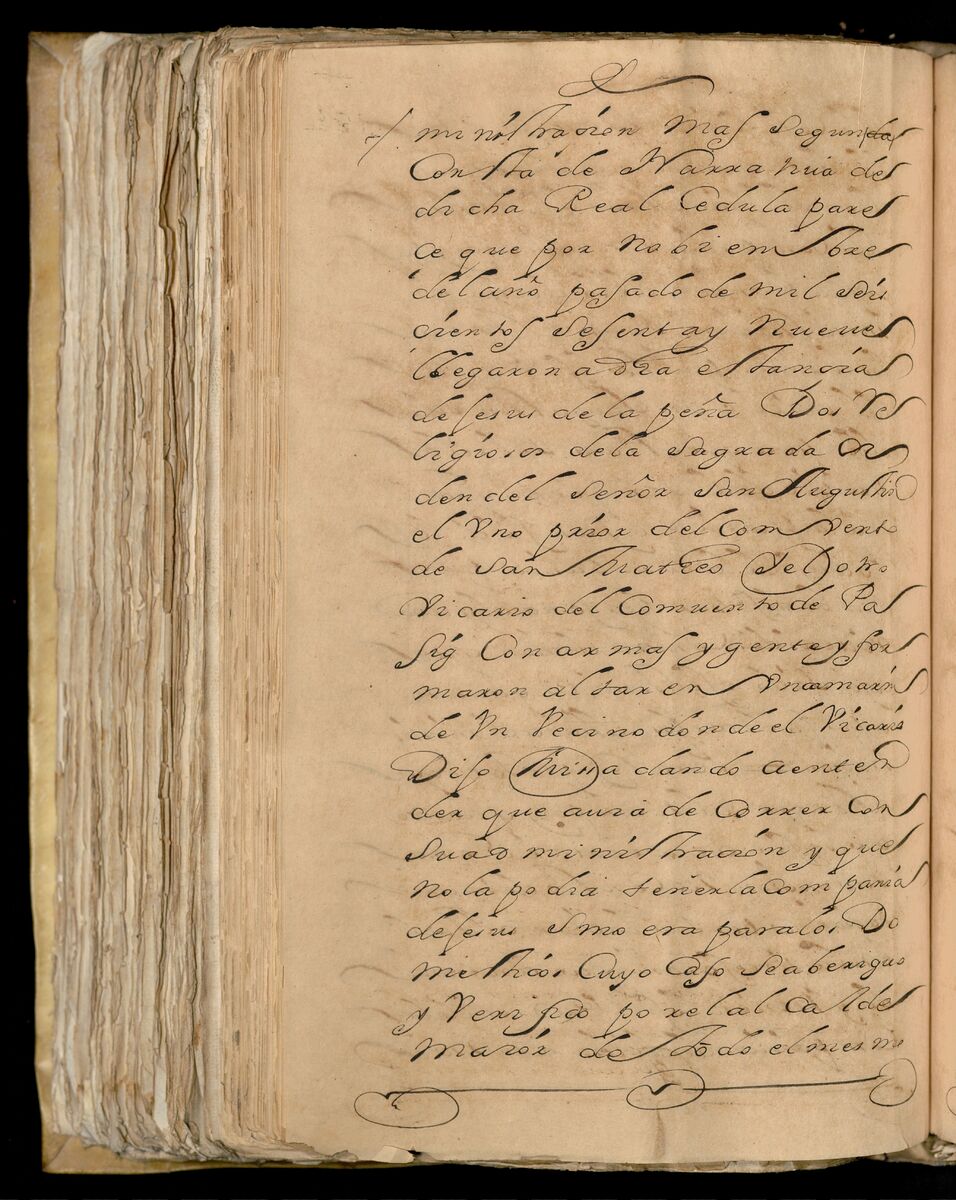 ministraçion mas segun
Consta de Narratiua de
dicha Real Cedula pare
ce que por nobiembre
del año pasado de mil seis
cientos sesenta y nueue
llegaron a dha estançia
de Jesus de la peña Dos Re
ligiosos de la sagrada or
den del señor San Augustin
el Vno prior del Comvento
de San Matheo y el otro
Vicario del Comuento de Pa
sig Con armas y gente y for
maron altar en Vna
de Vn Vecino donde el Vicario
Dijo Missa dando a enten
der que auia de correr con
su administraçion y que
no la podia tener la Compania
de Jesus sino era para los Do
mesticos Cuyo Caso se aberiguo
y Verifico por el alcalde
maior de todo el mesmo